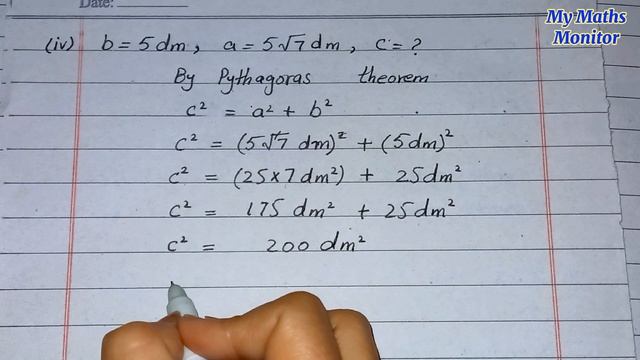 Date:
My Maths
Monitor
(iv) b = 5 dm, a = 5√7 dm, c = ?
By Pythagoras theorem
c² = a² + b²
c² = (5√7 dm)² + (5dm)²
c² = (25×7 dm²) + 25dm²
c² = 175 dm² + 25dm²
c² = 200 dm²